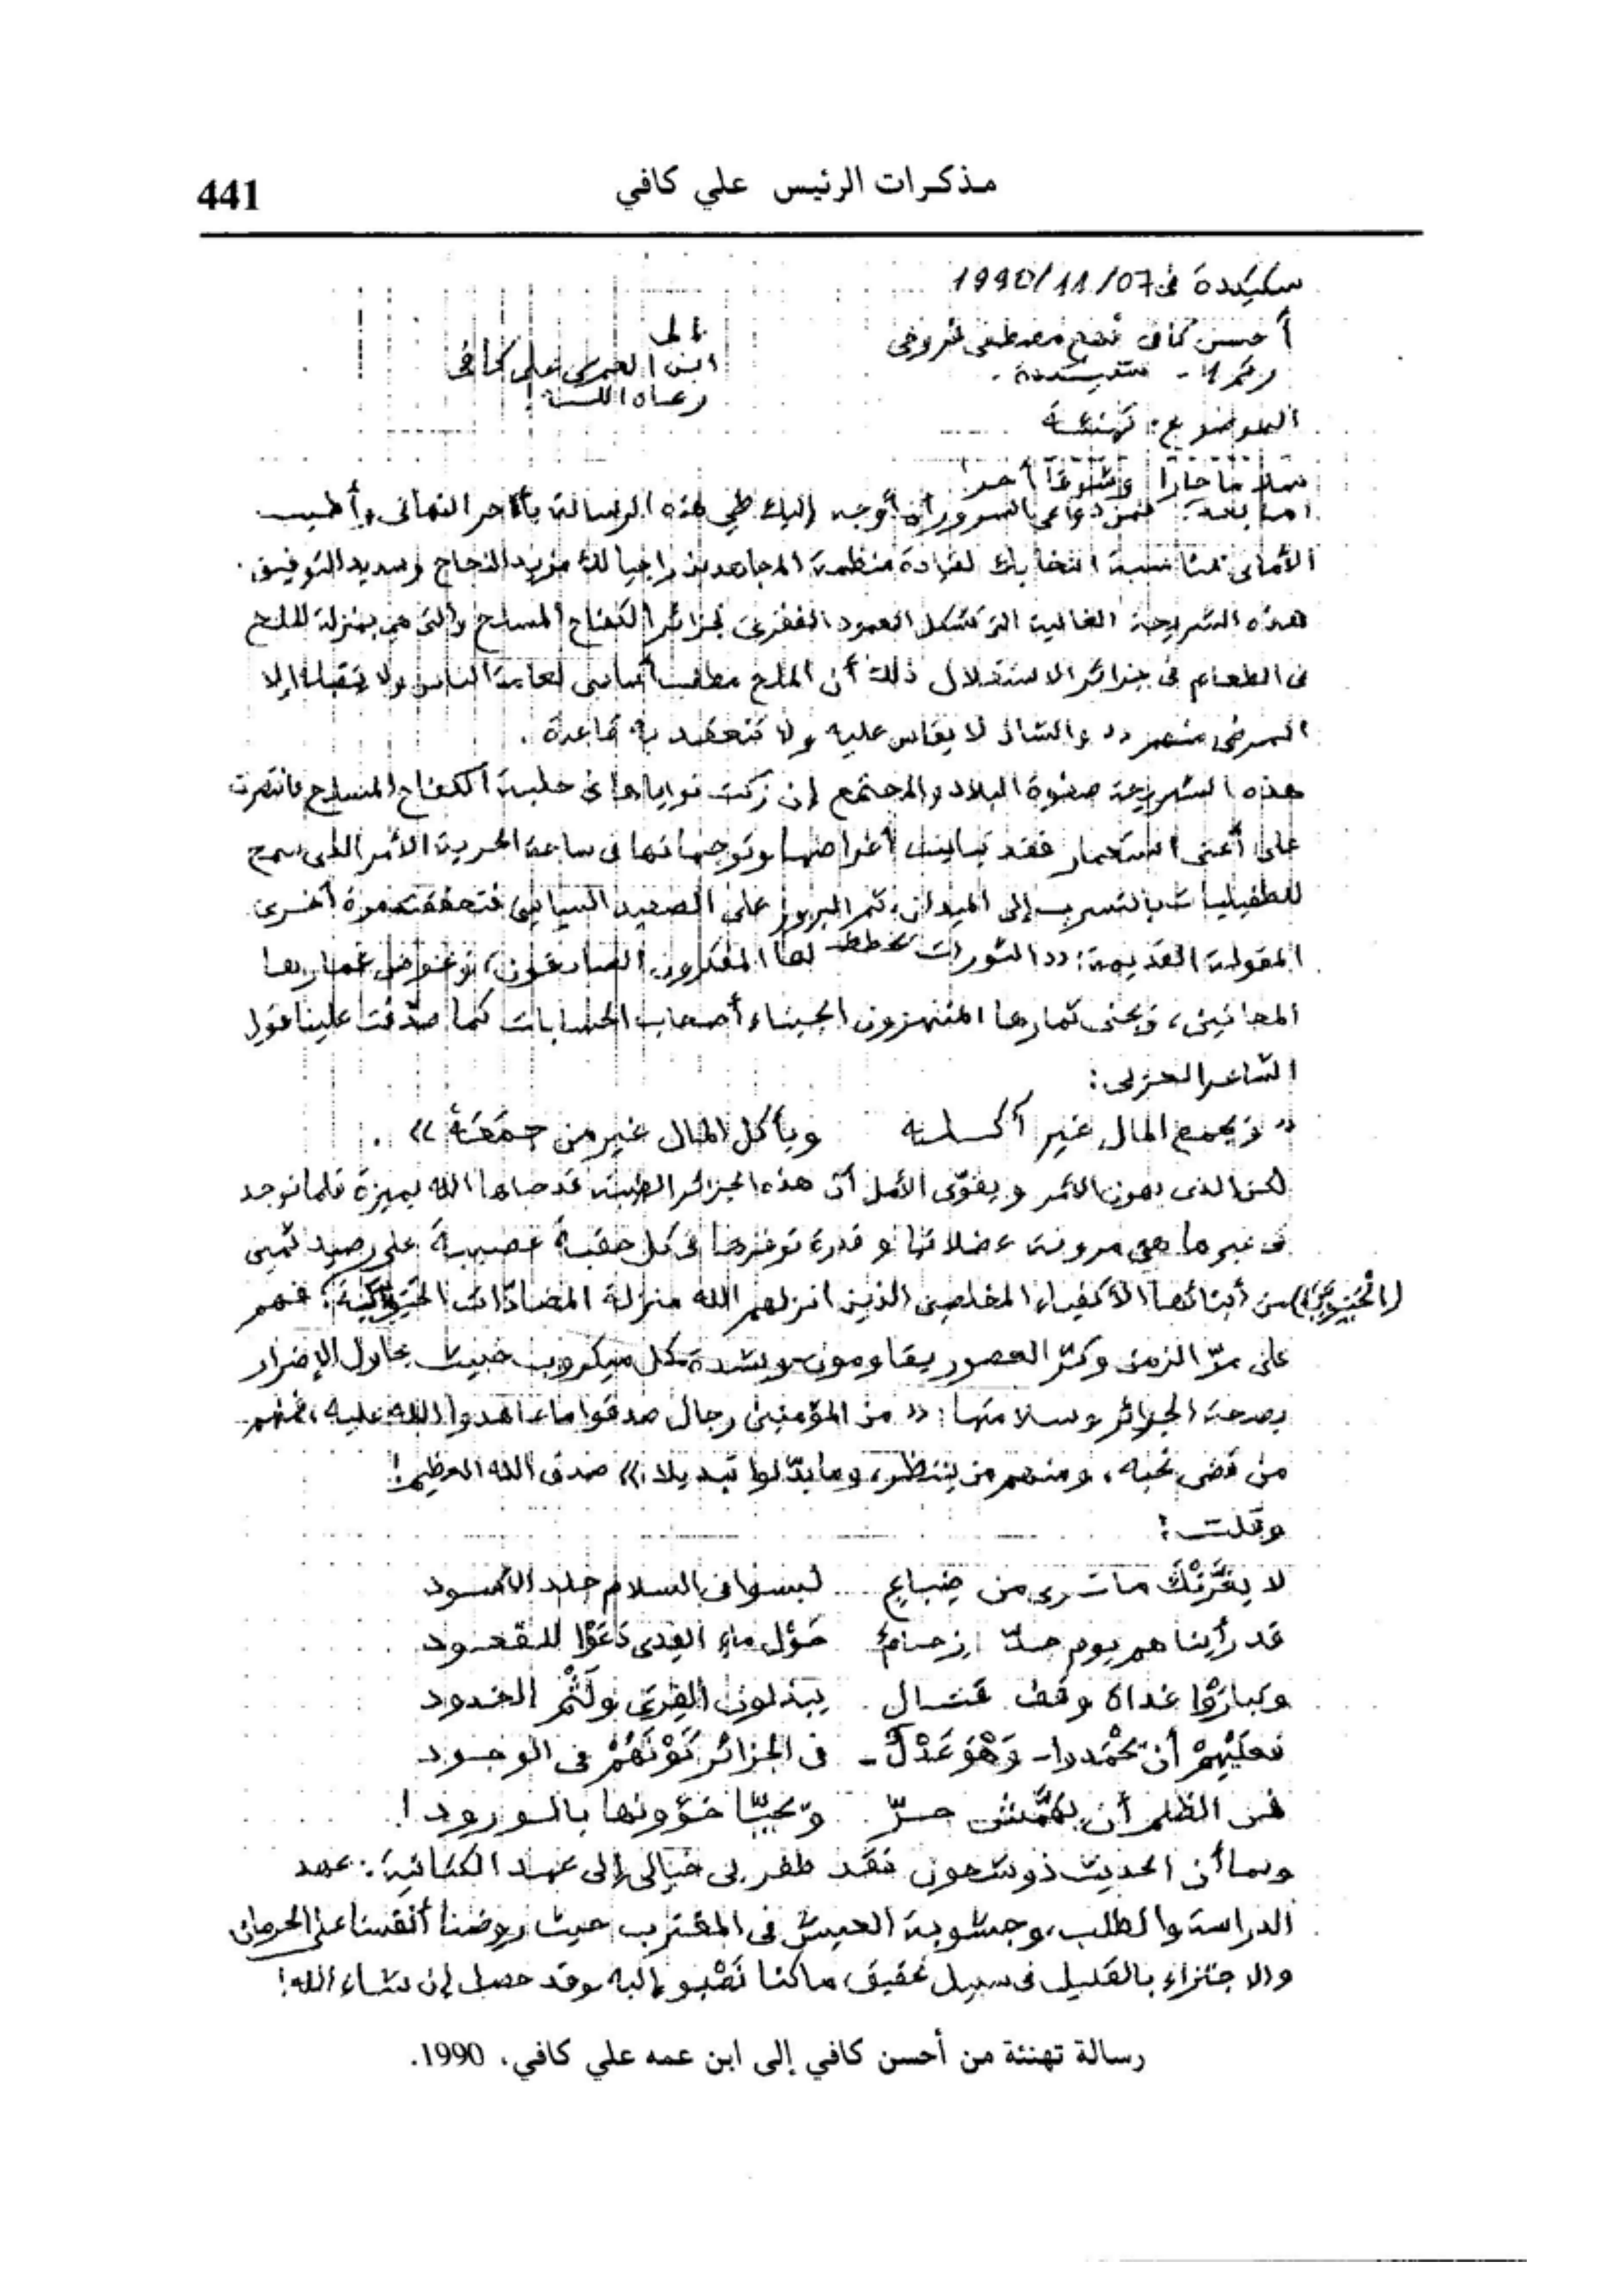 مذكرات الرئيس علي كافي
441
سكيكدة في 07/11/1990
أحسن كافي نهج مصطفى
رقم - سكيكدة -
إلى
ابن العم سي علي كافي
رعاه الله
الموضوع: تهنئة
سلاما حارا وشوقا أحر
أما بعد: فمن دواعي السرور أن أوجه إليك طي هذه الرسالة بأحر التهاني وأطيب
الأماني بمناسبة انتخابك لقيادة منظمة المجاهدين راجيا لك مزيد النجاح وسديد التوفيق.
هذه الشريحة الغالية التي تشكل العمود الفقري لجزائر الكفاح المسلح والتي هي بمنزلة الملح
في الطعام في جزائر الاستقلال ذلك أن الملح مطلب أساسي لعامة الناس ولا إلا
المرضى منهم «والشاذ لا يقاس عليه ولا تنعقد به قاعدة.
هذه الشريحة صفوة البلاد والمجتمع إن زكت نواياها في حلبة الكفاح المسلح فانتصرت
على أعتى استعمار فقد تباينت أغراضها وتوجهاتها في ساعة الحرية الأمر الذي سمح
للطفيليات بالتسرب إلى الميدان ثم البروز على الصعيد السياسي فتحققت مرة أخرى
المقولة القديمة: «الثورات يخطط لها المفكرون الصادقون، ويخوض غمارها
المجانين، ويجني ثمارها المنتهزون الجبناء أصحاب الحسابات كما صدقت علينا قول
الشاعر الهزلي:
«ويجمع المال غير آكله ويأكل المال غير من جمعه».
لكن الذي يهون الأمر ويقوّي الأمل أنّ هذه الجزائر الطيبة قد حباها الله بميزة قلما توجد
في غيرها هي مرونة عضلاتها وقدرة توفرها في كل حقبة عصيبة على رصيد ثمين
من أبنائها الأكفياء المخلصين الذين أنزلهم الله منزلة المضادّات الحيوية فهم
على مرّ الزمن وكرّ العصور يقاومون وبشدة كل ميكروب خبيث يحاول الإضرار
بصحة الجزائر وسلامتها: «من المؤمنين رجال صدقوا ما عاهدوا الله عليه، فمنهم
من قضى نحبه، ومنهم من ينتظر، وما بدّلوا تبديلا» صدق الله العظيم!
وقلت:
لا يغُرَّنْكَ ما ترى من ضِباعٍ لبسوا في السلام جلد الأسود
قد رأيناهم يوم جدّ ازحامٌ حَوْل ماء الفدى دَعَوْا للقعود
وتبارَوْا غداة وقف قتال يبذلون القِرى ولَثْم الخدود
فعلَيْهِمْ أن يَحْمَدوا - وَهْوَ عَدْلٌ - في الجزائر كَوْنَهُمْ في الوجود
فمن الظلم أن يُهَمَّش حرّ ويُحَيّا خؤونها بالورود!
وبما أن الحديث ذو شجون فقد طفر بي خيالي إلى عهد الكتانية: عهد
الدراسة والطلب، وجشوبة العيش في المغترب حيث روضنا أنفسنا على الحرمان
والاجتزاء بالقليل في سبيل تحقيق ما كنا نَصْبو إليه وقد حصل إن شاء الله!
رسالة تهنئة من أحسن كافي إلى ابن عمه علي كافي، 1990.